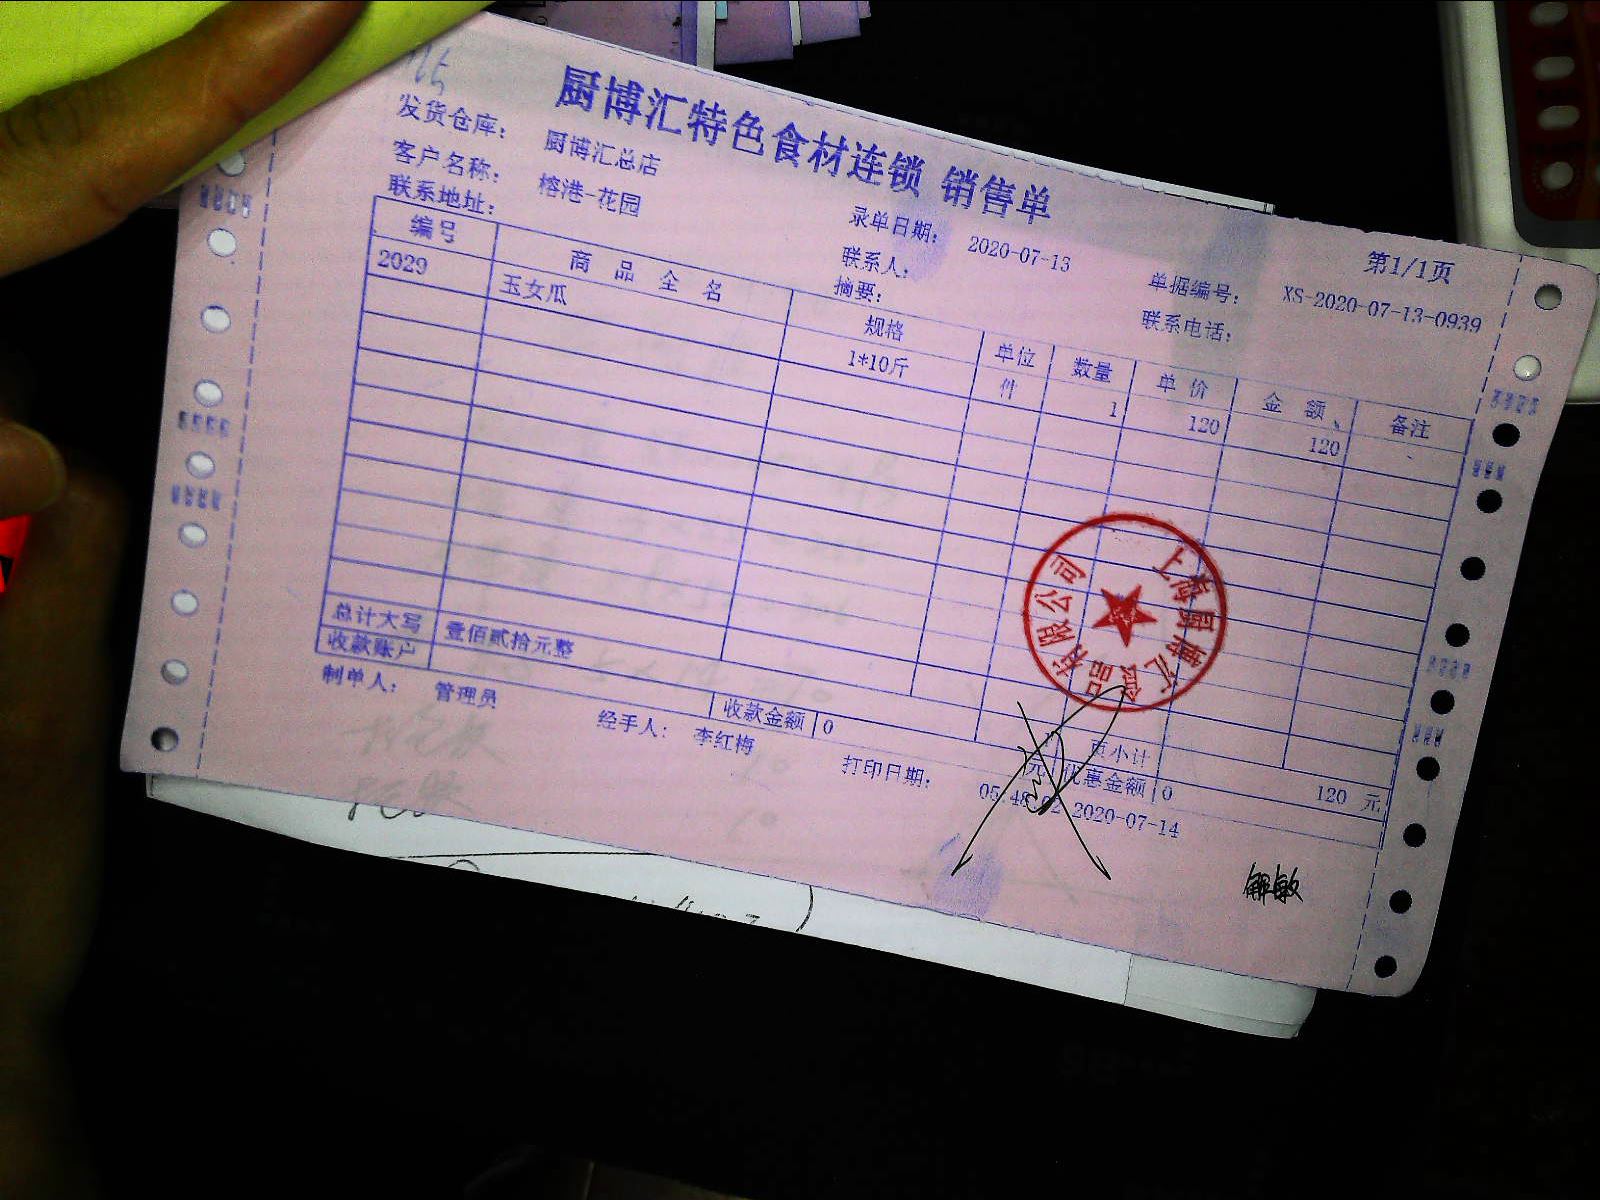 厨博汇特色食材连锁 销售单
发货仓库： 厨博汇总店 录单日期： 2020-07-13 第1/1页
客户名称： 榕港-花园 联系人： 单据编号： XS-2020-07-13-0939
联系地址： 摘要： 联系电话：
编号 商品全名 规格 单位 数量 单价 金额 备注
2029 玉女瓜 1*10斤 件 1 120 120
总计大写 壹佰贰拾元整 页小计 120 元
收款账户 收款金额 0 元 优惠金额 0
制单人： 管理员 经手人： 李红梅 打印日期： 05:48:02 2020-07-14
上海厨博汇食品有限公司
解敏